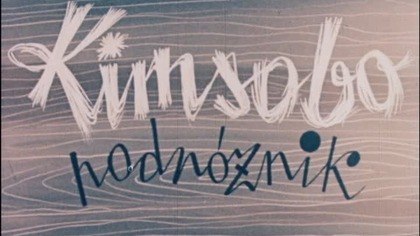 Kimsobo
podróżnik